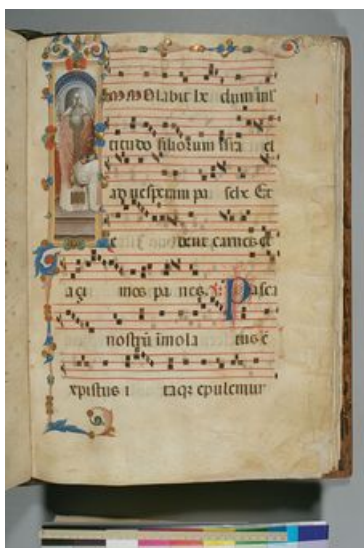 MMOlabit hx dum mul
titudo filiorum isra el
ad uesperam pa sche Et
e dent carnes et
açi mos pa nes. Pasca
nostrũ imola tus ẽ
xpistus i taqz epulemur